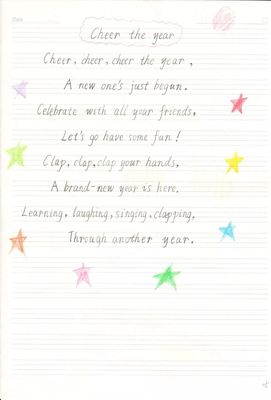 Cheer the year
Cheer, cheer, cheer the year,
A new one's just begun.
Celebrate with all your friends,
Let's go have some fun!
Clap, clap, clap your hands,
A brand-new year is here.
Learning, laughing, singing, clapping,
Through another year.